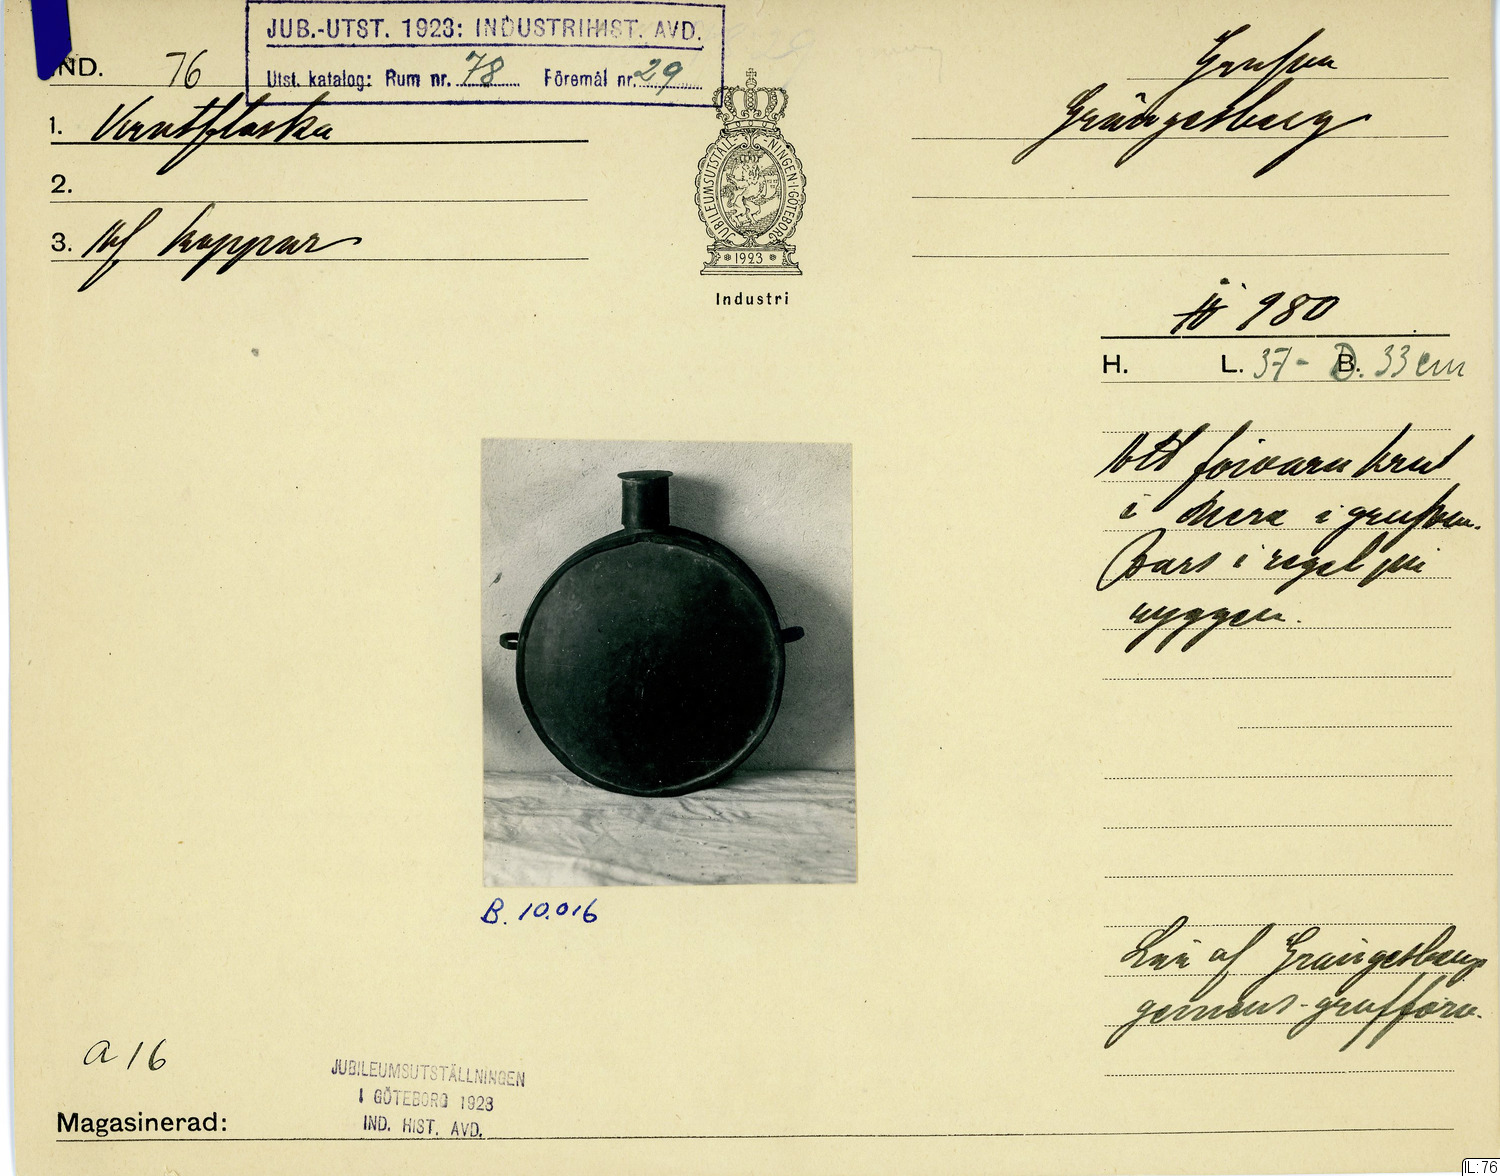 JUB.-UTST. 1923: INDUSTRIHIST. AVD.
Utst. katalog: Rum nr. 78 Föremål nr. 29
IND. 76
1. Krutflaska
2.
3. Af koppar
JUBILEUMSUTSTÄLLNINGEN I GÖTEBORG
1923
Industri
Grufva
Grängesberg
980
H. L. 37 - B. D. 33 cm
Att förvara krut
i nere i grufvan.
Bars i regel på
ryggen.
B. 10.016
Lån af Grängesbergs
gemens. grufförv.
a 16
JUBILEUMSUTSTÄLLNINGEN
I GÖTEBORG 1923
IND. HIST. AVD.
Magasinerad:
IL:76